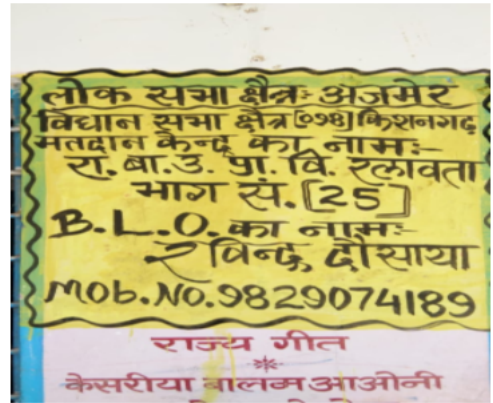 लोक सभा क्षैत्र: अजमेर
विधान सभा क्षैत्र [०१४] किशनगढ़
मतदान केन्द्र का नाम:-
रा. बा. उ. प्रा. वि. रलावता
भाग सं. [25]
B.L.O. का नाम:-
रविन्द्र दौसाया
Mob.No.9829074189
राज्य गीत
केसरीया बालम आओनी